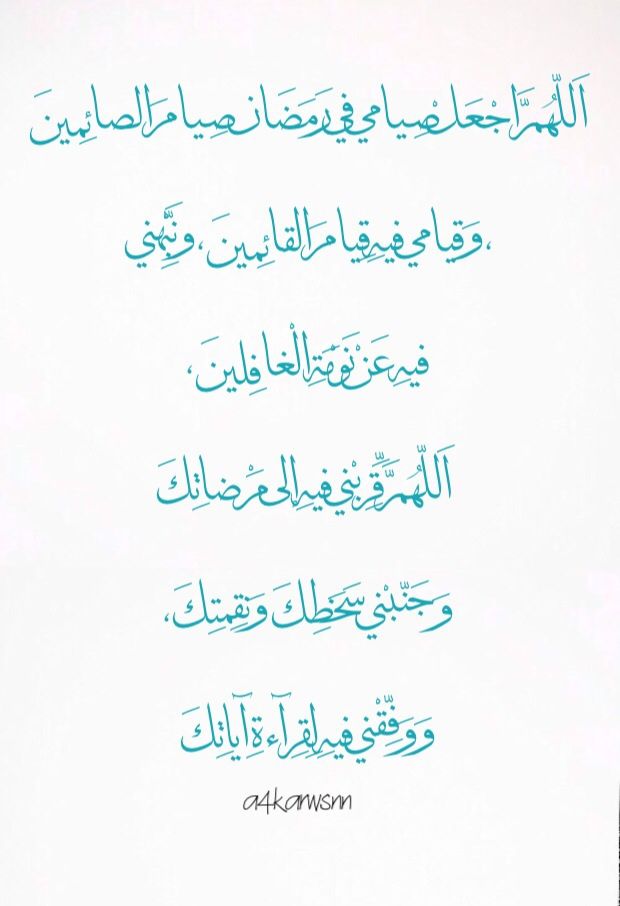 اَللّهُمَّ اجْعَلْ صِيامي في رَمَضَان صِيامَ الصائِمينَ
،وَقِيامي فيهِ قِيامَ القائِمينَ ،ونَبِّهني
فيهِ عَنْ نَوْمَةِ الْغافِلينَ،
اَللّهُمَّ قَرِّبْني فيهِ اِلى مَرْضاتِكَ
وَجَنِّبْني سَخَطِكَ وَنَقِمتِكَ،
وَوَفِّقْني فيهِ لِقِرآءةِ آياتِكَ
a4karwsnn